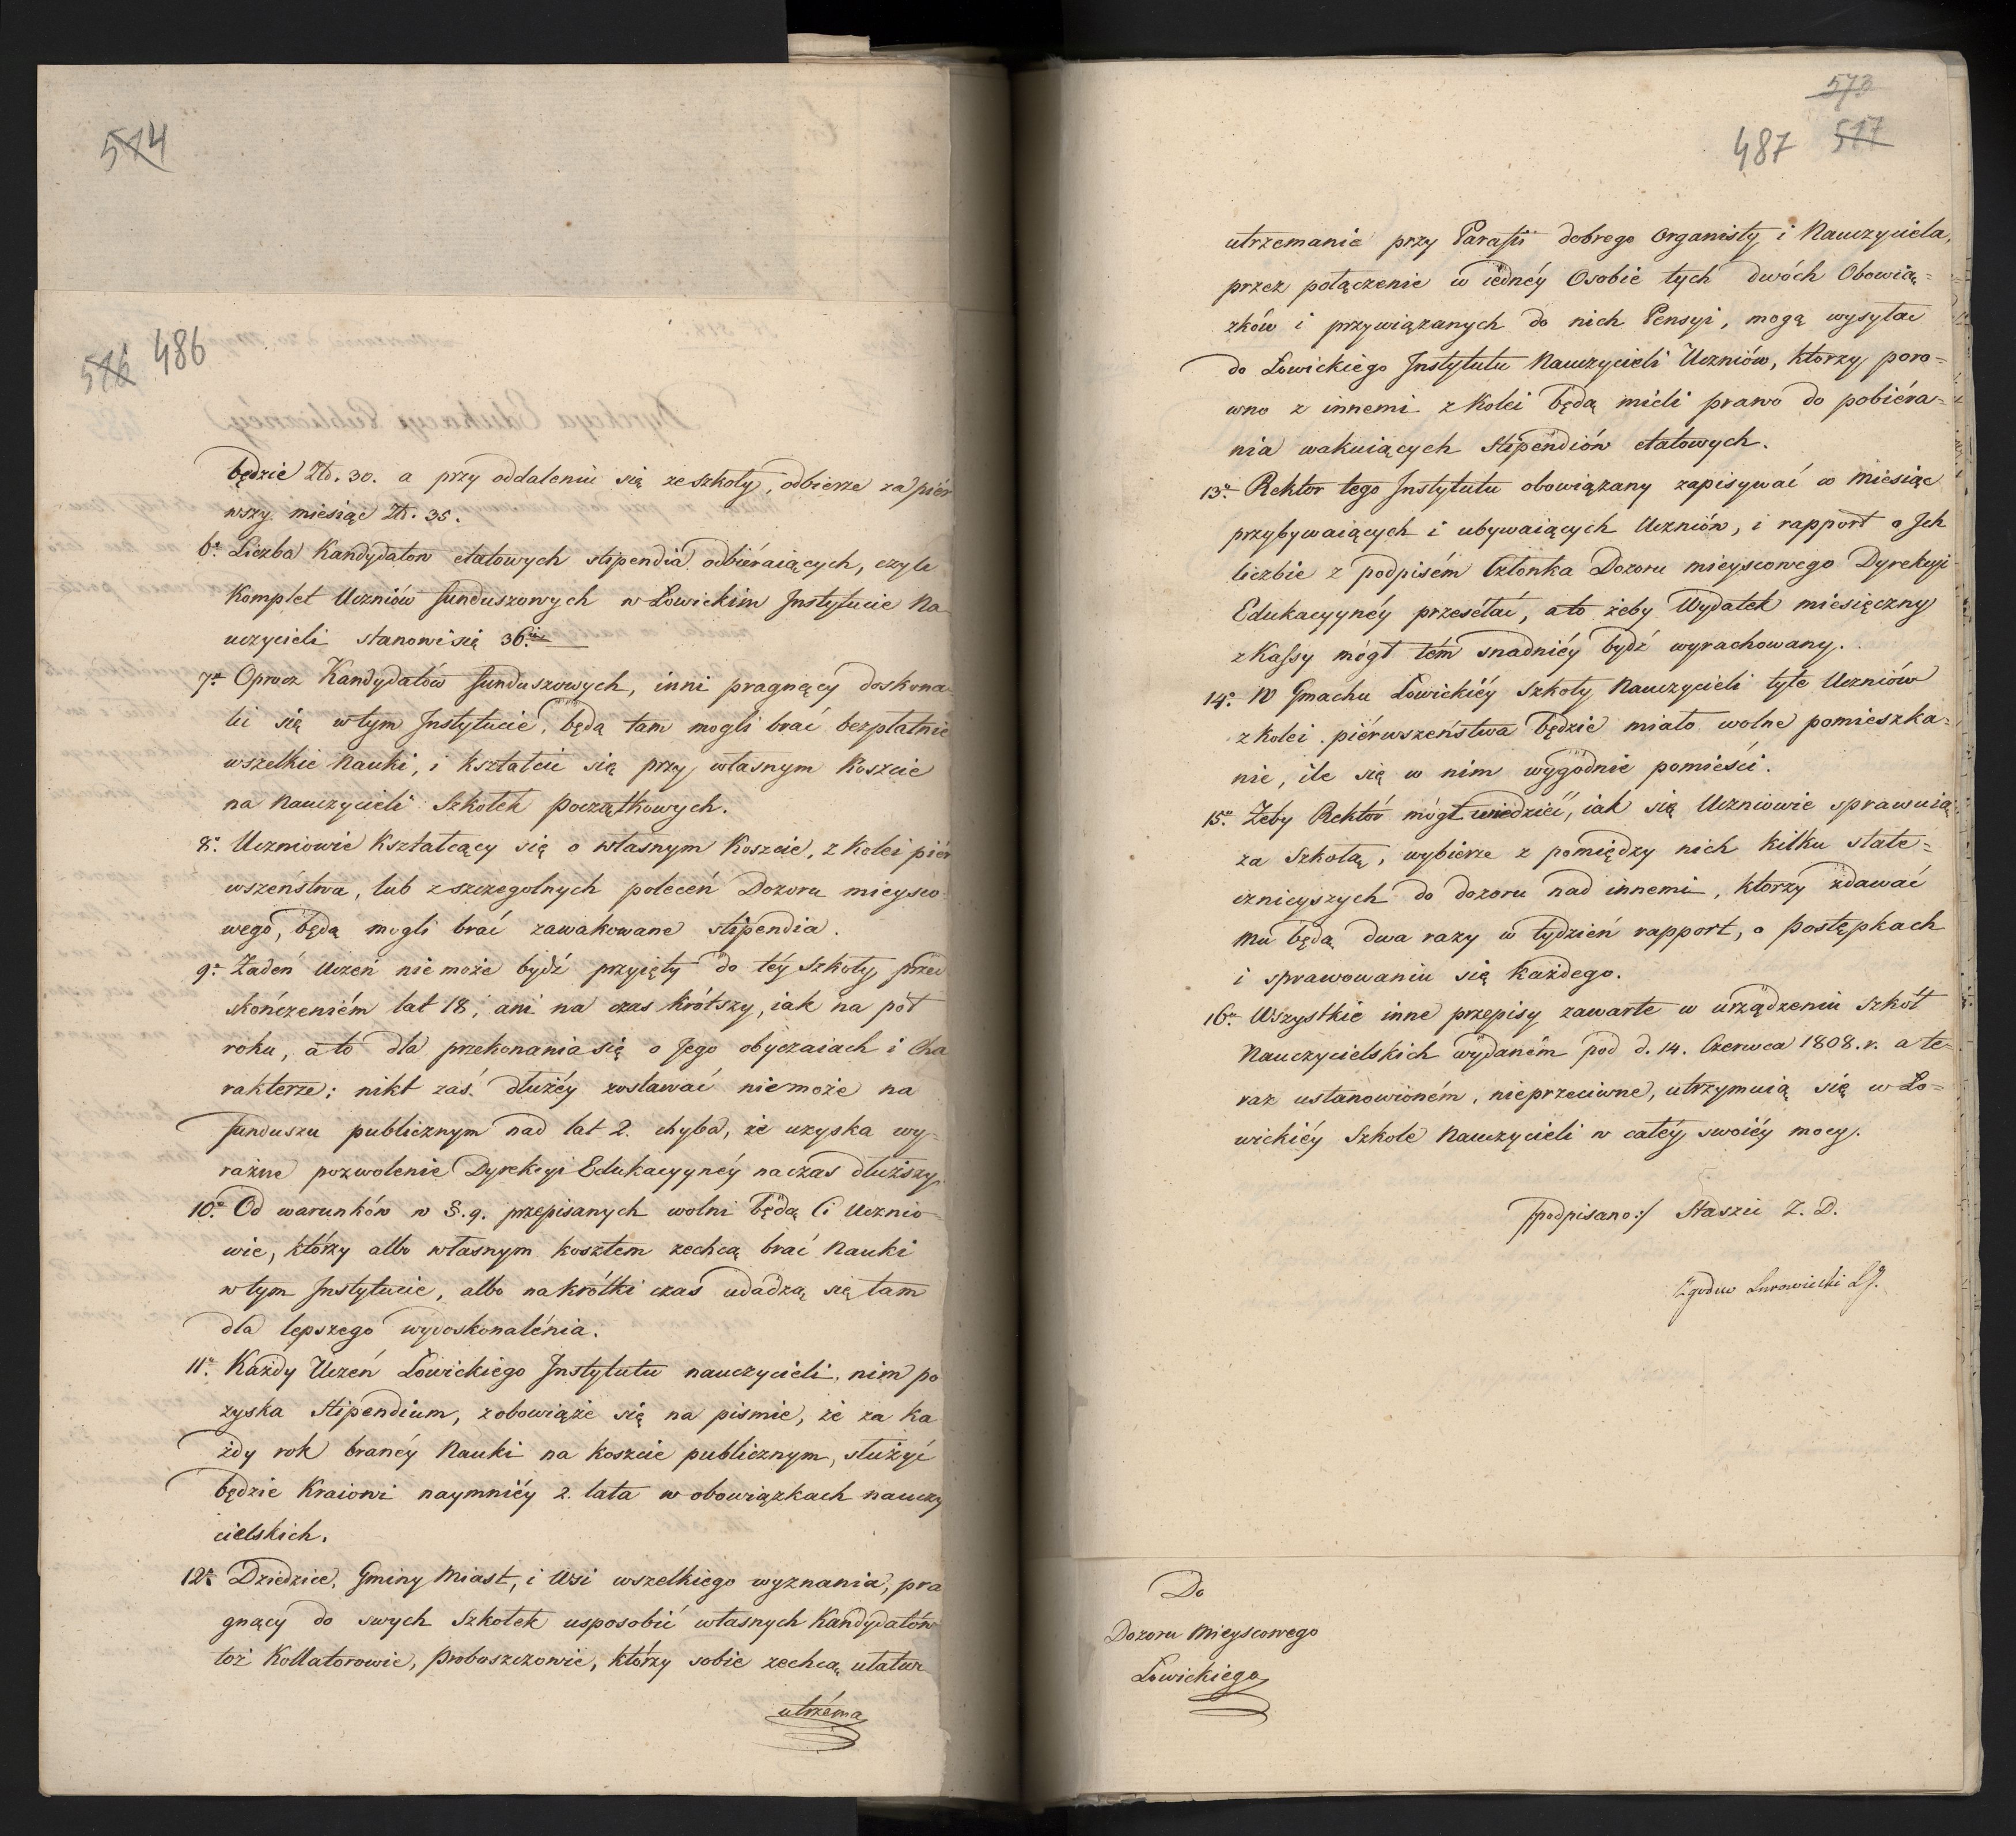 514
516 486
będzie Złł. 30. a przy oddaleniu się ze szkoły, odbierze za piér
wszy miesiąc Złł. 35.
6º. Liczba Kandydatow etatowych stipendia odbiéraiących, czyli
Komplet Uczniów funduszowych w Łowickim Jnstytucie Na
uczycieli stanowi się 36.
7º. Oprocz Kandydatów funduszowych, inni pragnący doskona
lić się w tym Jnstytucie, będą tam mogli brać bezpłatnie
wszelkie Nauki, i kształcić się przy własnym Koszcie
na Nauczycieli Szkołek początkowych.
8º. Uczniowie Kształcący się o własnym Koszcie, z Kolei piér
wszeństwa, lub z szczegolnych poleceń Dozoru mieysco
wego, będą mogli brać zawakowane stipendia.
9º. Żaden Uczeń nie może bydź przyięty do téy Szkoły przed
skończeniém lat 18, ani na czas krótszy, iak na pół
roku, a to dla przekonania się o Jego obyczaiach i Cha
rakterze; nikt zaś dłużéy zostawać nie może na
funduszu publicznym nad lat 2. chyba, że uzyska wy=
raźne pozwolenie Dyrekcyi Edukacyynéy na czas dłuższy.
10º. Od warunków w §. 9. przepisanych wolni będą Ci Ucznio
wie, którzy albo własnym kosztem zechcą brać Nauki
w tym Jnstytucie, albo na krótki czas udadzą się tam
dla lepszego wydoskonalénia.
11º. Każdy Uczeń Łowickiego Jnstytutu nauczycieli, nim po
zyska Stipendium, zobowiąże się na pismie, że za Ka
żdy rok branéy Nauki na koszcie publicznym, służyć
będzie Kraiowi naymniéy 2. lata w obowiązkach nauczy
cielskich.
12º. Dziedzice, Gminy Miast, i Wsi wszelkiego wyznania, pra
gnący do swych Szkołek usposobić własnych Kandydatów
toż Kollatorowie, Proboszczowie, którzy sobie zechcą ułatw
utrzéma
573
487 517
utrzemanie przy Parafii dobrego Organisty i Nauczyciela,
przez połączenie w iednéy Osobie tych dwóch Obowią=
zków i przywiązanych do nich Pensyi, mogą wysyłać
do Łowickiego Jnstytutu Nauczycieli Uczniów, ktorzy poro=
wno z innemi z Kolei będą mieli prawo do pobiéra=
nia wakuiących Stipendiów etatowych.
13º. Rektor tego Jnstytutu obowiązany zapisywać co Miesiąc
przybywaiących i ubywaiących Uczniów, i rapport o Jch
liczbie z podpisém Członka Dozoru mieyscowego Dyrekcyi
Edukacyynéy przesełać, a to żeby Wydatek miesięczny
z Kassy mógł tém snadniéy bydź wyrachowany.
14º. W Gmachu Łowickiéy Szkoły Nauczycieli tyle Uczniów
z kolei piérwszeństwa będzie miało wolne pomieszka=
nie, ile się w nim wygodnie pomieści.
15º. Żeby Rektór mógł wiedzieć, iak się Uczniowie sprawuią
za Szkołą, wybierze z pomiędzy nich kilku state=
cznieyszych do dozoru nad innemi, ktorzy zdawać
mu będą dwa razy w tydzień rapport, o postępkach
i sprawowaniu się każdego.
16º. Wszystkie inne przepisy zawarte w urządzeniu Szkół
Nauczycielskich wydaném pod d. 14. Czerwca 1808. r. a te=
raz ustanowioném, nieprzeciwne, utrzymuią się w Ło=
wickiéy Szkole Nauczycieli w całéy swoiéy mocy.
/podpisano:/ Staszic Z. D.
Zgodno Surowiecki
Do
Dozoru Mieyscowego
Łowickiego